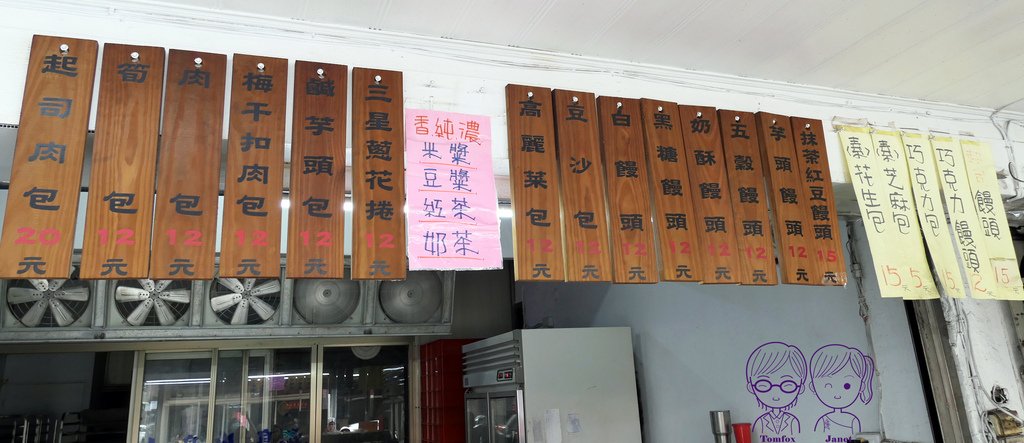 起司肉包20元
筍包12元
肉包12元
梅干扣肉包12元
鹹芋頭包12元
三星蔥花捲12元
香純濃
米漿
豆漿
紅茶
奶茶
高麗菜包12元
豆沙包12元
白饅頭12元
黑糖饅頭12元
奶酥饅頭12元
五穀饅頭12元
芋頭饅頭12元
抹茶紅豆饅頭15元
花生包15元
芝麻包15元
巧克力包15元
巧克力饅頭
饅頭15元
Tomfox